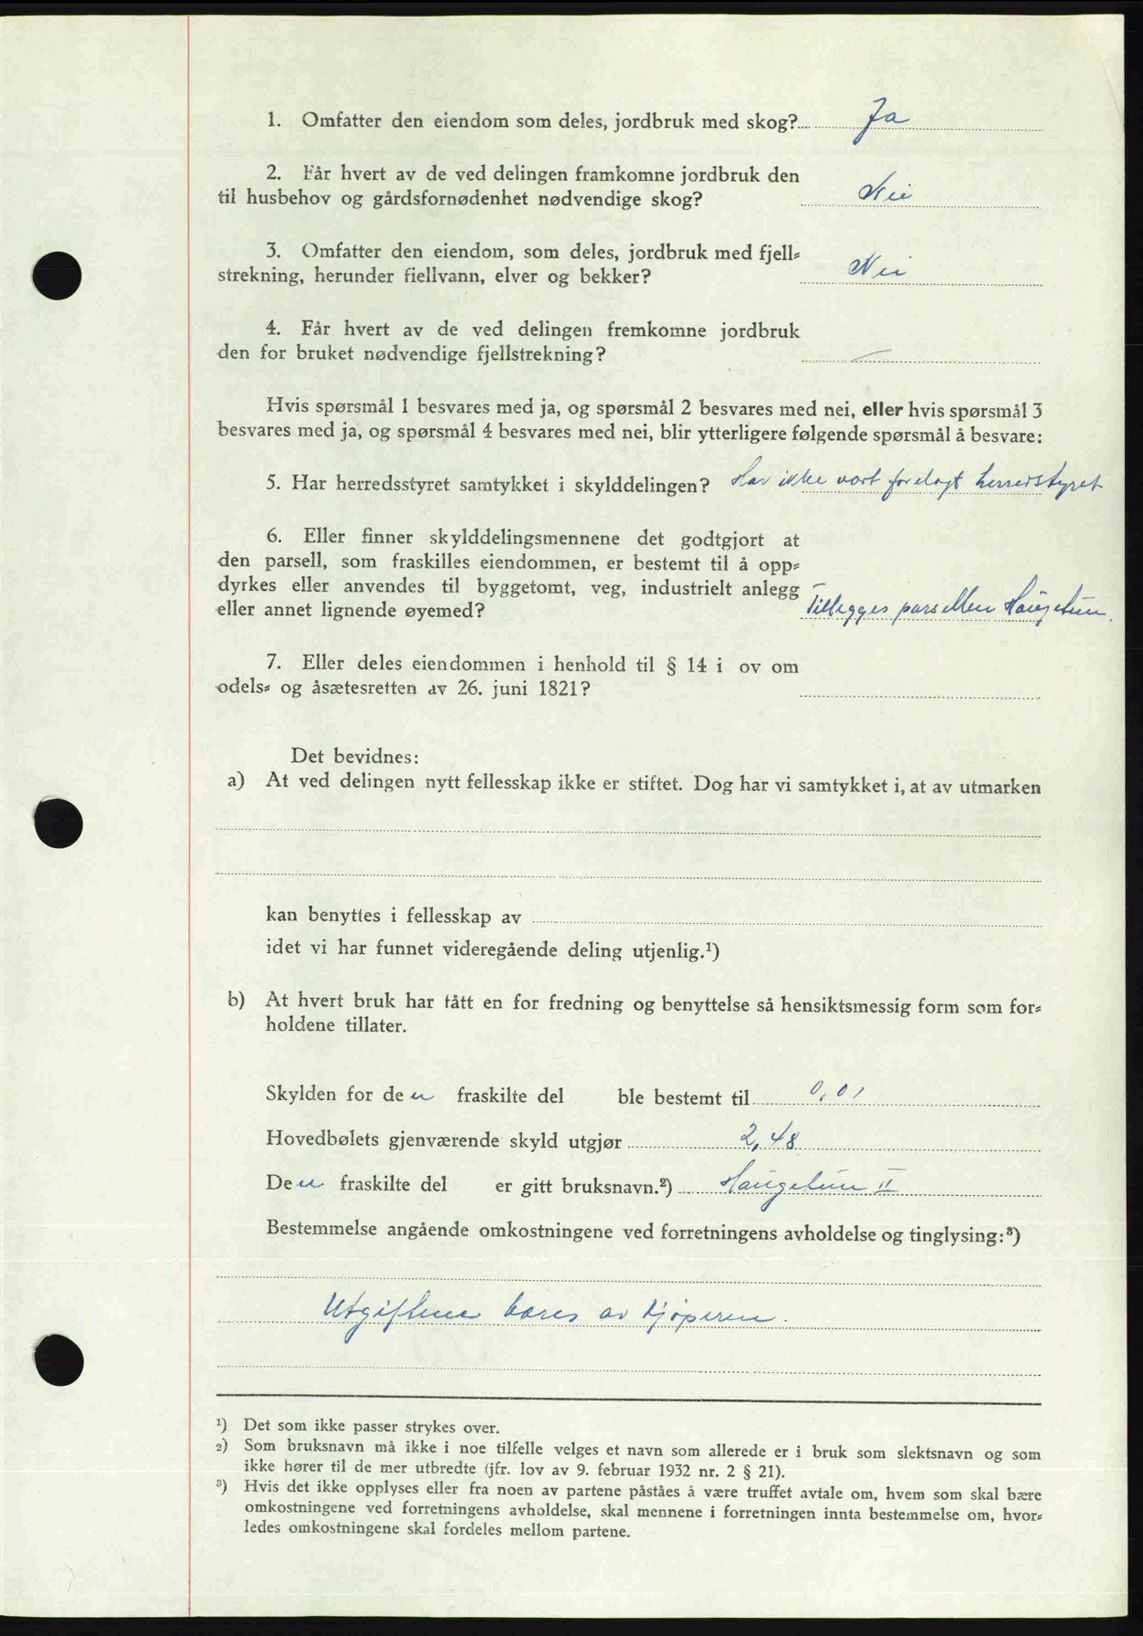 1. Omfatter den eiendom som deles, jordbruk med skog? Ja
2. Får hvert av de ved delingen framkomne jordbruk den
til husbehov og gårdsfornødenhet nødvendige skog? Nei
3. Omfatter den eiendom, som deles, jordbruk med fjell-
strekning, herunder fiellvann, elver og bekker? Nei
4. Får hvert av de ved delingen fremkomne jordbruk
den for bruket nødvendige fjellstrekning? —
Hvis spørsmål 1 besvares med ja, og spørsmål 2 besvares med nei, eller hvis spørsmål 3
besvares med ja, og spørsmål 4 besvares med nei, blir ytterligere følgende spørsmål å besvare:
5. Har herredsstyret samtykket i skylddelingen? Har ikke vært forelagt herredstyret
6. Eller finner skylddelingsmennene det godtgjort at
den parsell, som fraskilles eiendommen, er bestemt til å opp-
dyrkes eller anvendes til byggetomt, veg, industrielt anlegg
eller annet lignende øyemed? Tillegges parsellen Haugetun.
7. Eller deles eiendommen i henhold til § 14 i ov om
odels- og åsætesretten av 26. juni 1821?
Det bevidnes:
a) At ved delingen nytt fellesskap ikke er stiftet. Dog har vi samtykket i, at av utmarken
kan benyttes i fellesskap av
idet vi har funnet videregående deling utjenlig.¹)
b) At hvert bruk har tått en for fredning og benyttelse så hensiktsmessig form som for-
holdene tillater.
Skylden for den fraskilte del ble bestemt til 0,01
Hovedbølets gjenværende skyld utgjør 2,48
Den fraskilte del er gitt bruksnavn.²) Haugetun II
Bestemmelse angående omkostningene ved forretningens avholdelse og tinglysing:³)
Utgiftene bæres av kjøperen.
¹) Det som ikke passer strykes over.
²) Som bruksnavn må ikke i noe tilfelle velges et navn som allerede er i bruk som slektsnavn og som
ikke hører til de mer utbredte (jfr. lov av 9. februar 1932 nr. 2 § 21).
³) Hvis det ikke opplyses eller fra noen av partene påståes å være truffet avtale om, hvem som skal bære
omkostningene ved forretningens avholdelse, skal mennene i forretningen innta bestemmelse om, hvor-
ledes omkostningene skal fordeles mellom partene.